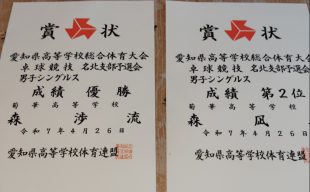 賞状
愛知県高等学校総合体育大会
卓球競技 名北支部予選会
男子シングルス
成績 優勝
菊華高等学校
森 渉流
令和7年4月26日
愛知県高等学校体育連盟
賞状
愛知県高等学校総合体育大会
卓球競技 名北支部予選会
男子シングルス
成績 第2位
菊華高等学校
森 凪
令和7年4月26日
愛知県高等学校体育連